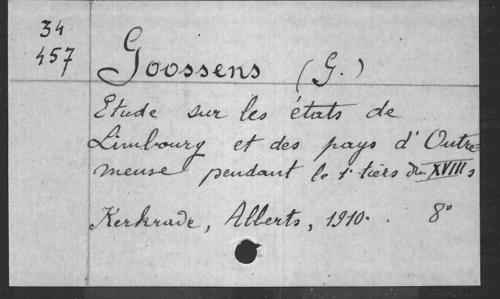 34
457
Goossens (G.)
Etude sur les états de
Limbourg et des pays d'Outre=
meuse pendant le 1r tiers du XVIII s
Kerkrade, Alberts, 1910. 8°